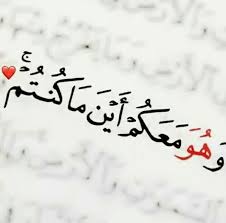 وَهُوَ مَعَكُمْ أَيْنَ مَا كُنتُمْ ۚ